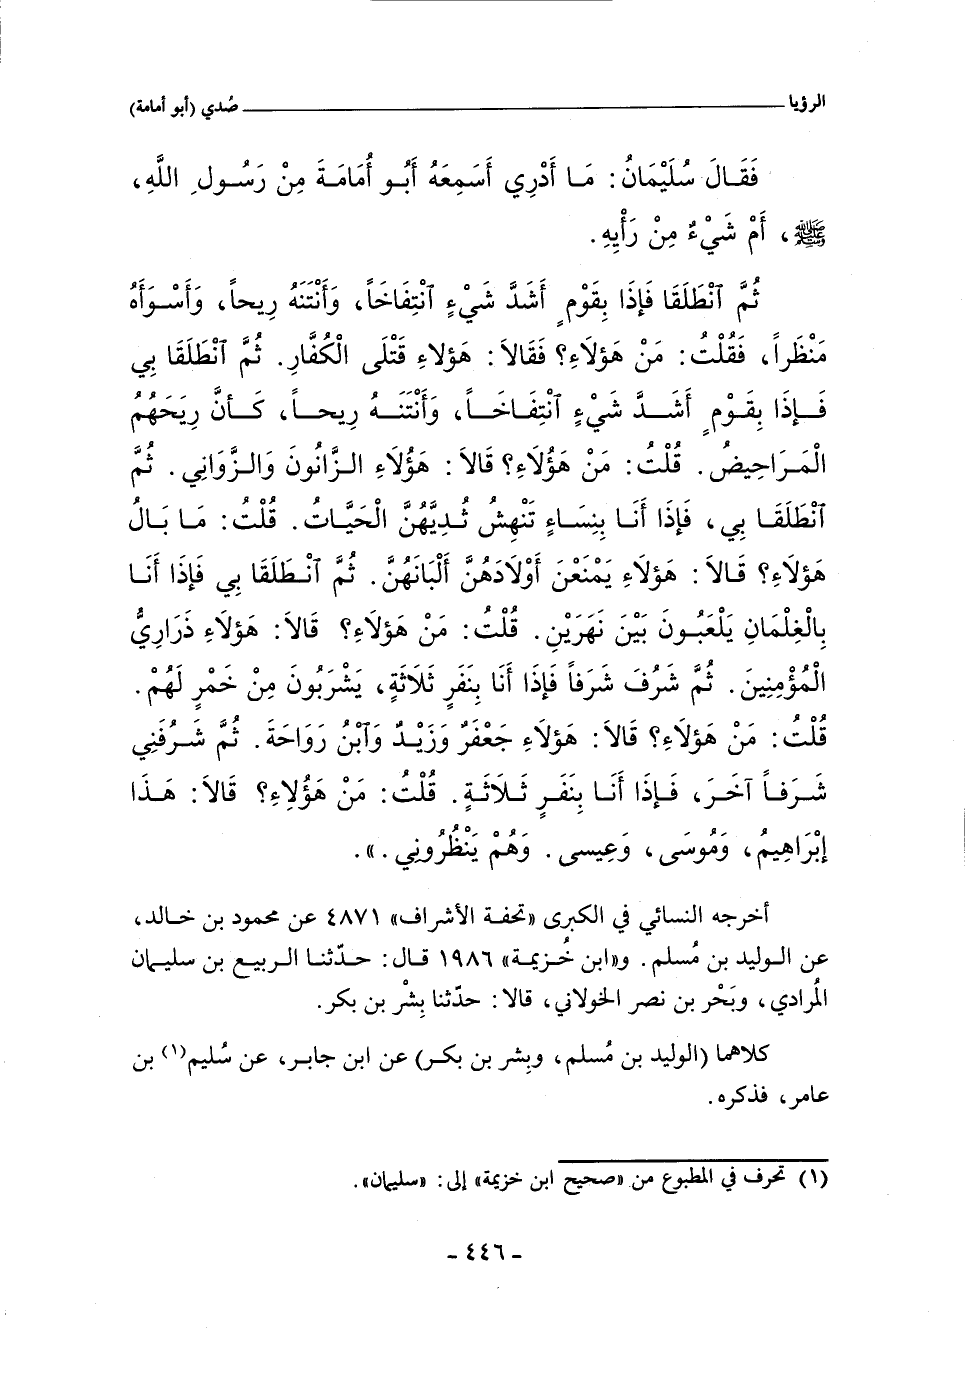 الرؤيا صُدي (أبو أمامة)
فَقَـالَ سُلَيْمَانُ: مَـا أَدْرِي أَسَمِعَهُ أَبُـو أُمَامَةَ مِنْ رَسُـولِ اللَّهِ،
ﷺ، أَمْ شَيْءٌ مِنْ رَأْيِهِ.
ثُمَّ ٱنْطَلَقَا فَإِذَا بِقَوْمٍ أَشَدَّ شَيْءٍ ٱنْتِفَاخاً، وَأَنْتَنَهُ رِيحاً، وَأَسْـوَأَهُ
مَنْظَراً، فَقُلْتُ: مَنْ هَؤُلَاءِ؟ فَقَالَا: هَؤلاءِ قَتْلَى الْكُفَّارِ. ثُمَّ ٱنْطَلَقَا بِي
فَـإِذَا بِقَوْمٍ أَشَـدَّ شَيْءٍ ٱنْتِفَـاخَـاً، وَأَنْتَنَـهُ رِيحـاً، كَـأنَّ رِيَحَهُمُ
الْمَرَاحِيضُ. قُلْتُ: مَنْ هَؤُلَاءِ؟ قَالَا: هَؤُلَاءِ الـزَّانُونَ وَالـزَّوَانِي. ثُمَّ
ٱنْطَلَقَـا بِي، فَإِذَا أَنَـا بِنِسَـاءٍ تَنْهِشُ ثُـدِيَّهُنَّ الْحَيَّـاتُ. قُلْتُ: مَـا بَـالُ
هَؤلَاءِ؟ قَـالَا: هَؤلَاءِ يَمْنَعْنَ أَوْلَادَهُنَّ أَلْبَانَهُنَّ. ثُمَّ ٱنْـطَلَقَا بِي فَإِذَا أَنَـا
بِالْغِلْمَانِ يَلْعَبُـونَ بَيْنَ نَهَرَيْنِ. قُلْتُ: مَنْ هَؤلَاءِ؟ قَالَا: هَؤلَاءِ ذَرَارِيُّ
الْمُؤْمِنِينَ. ثُمَّ شَرُفَ شَرَفاً فَإِذَا أَنَا بِنَفَرٍ ثَلَاثَةٍ، يَشْرَبُونَ مِنْ خَمْرٍ لَهُمْ.
قُلْتُ: مَنْ هَؤُلَاءِ؟ قَالَا: هَؤلَاءِ جَعْفَرٌ وَزَيْـدٌ وَٱبْنُ رَوَاحَةَ. ثُمَّ شَـرُفَنِي
شَـرَفـاً آخَـرَ، فَـإِذَا أَنَـا بِنَفَـرٍ ثَـلَاثَـةٍ. قُلْتُ: مَنْ هَؤُلاِءِ؟ قَالَا: هَـذَا
إِبْرَاهِيمُ، وَمُوسَى، وَعِيسى. وَهُمْ يَنْظُرُونِي.».
أخرجه النسائي في الكبرى «تحفـة الأشراف» ٤٨٧١ عن محمود بن خـالد،
عن الـوليد بن مُسلم. و«ابن خُـزيمـة» ١٩٨٦ قـال: حـدّثنـا الـربيـع بن سليـمان
المُرادي، وبَحْر بن نصر الخولاني، قالا: حدّثنا بِشْر بن بكر.
كلاهما (الوليد بن مُسلم، وبِشر بن بكـر) عن ابن جابـر، عن سُليم(١) بن
عامر، فذكره.
(١) تحرف في المطبوع من «صحيح ابن خزيمة» إلى: «سليمان».
- ٤٤٦ -